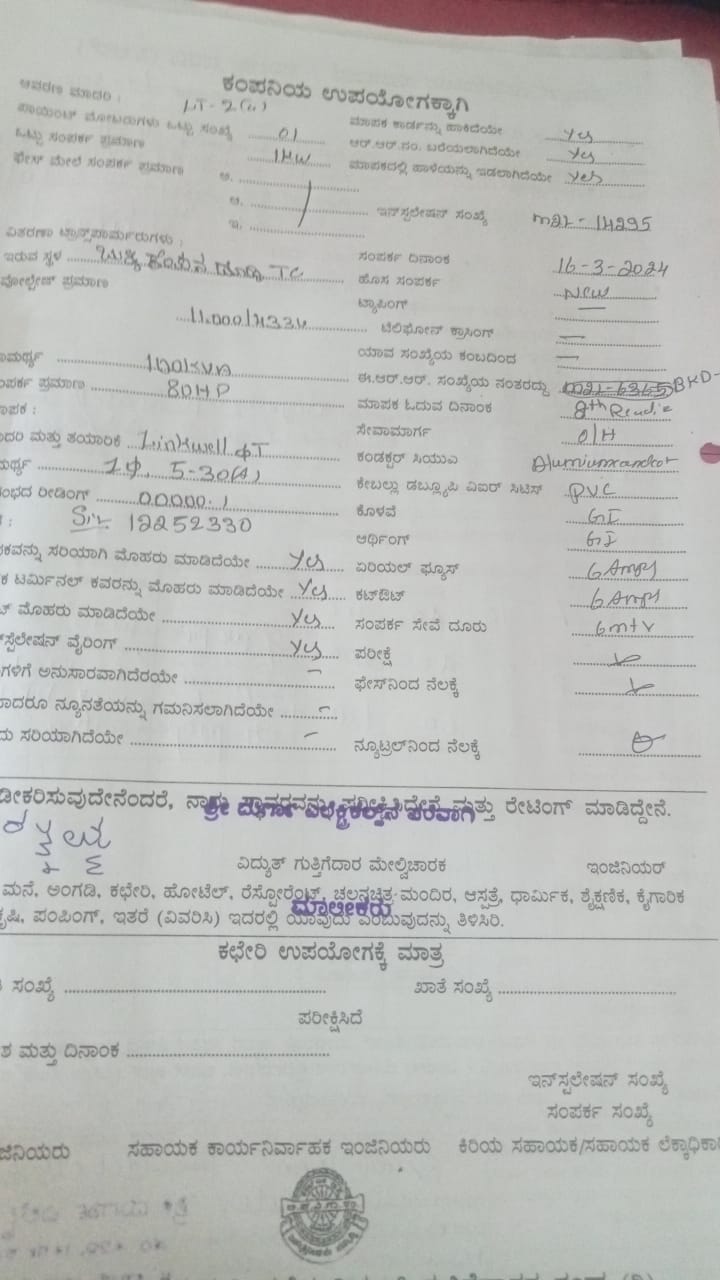 ಕಂಪನಿಯ ಉಪಯೋಗಕ್ಕಾಗಿ
ಆವರಣ ಮಾದರಿ : LT-2(a) ಮಾಪಕ ಕಾರ್ಡನ್ನು ಹಾಕಿದೆಯೇ Yes
ಪಾಯಿಂಟ್ ಮೋಟಾರುಗಳು ಒಟ್ಟು ಸಂಖ್ಯೆ 01 ಆರ್.ಆರ್.ನಂ. ಬರೆಯಲಾಗಿದೆಯೇ Yes
ಒಟ್ಟು ಸಂಪರ್ಕ ಪ್ರಮಾಣ 1KW ಮಾಪಕದಲ್ಲಿ ಹಾಳೆಯನ್ನು ಇಡಲಾಗಿದೆಯೇ Yes
ಫೇಸ್ ಮೇಲೆ ಸಂಪರ್ಕ ಪ್ರಮಾಣ ಅ.
ಆ. ಇನ್‌ಸ್ಟಲೇಷನ್ ಸಂಖ್ಯೆ m2L-14295
ಇ.
ವಿತರಣಾ ಟ್ರಾನ್ಸ್‌ಫಾರ್ಮರುಗಳು : ಸಂಪರ್ಕ ದಿನಾಂಕ 16-3-2024
ಇರುವ ಸ್ಥಳ TC ಹೊಸ ಸಂಪರ್ಕ New
ವೋಲ್ಟೇಜ್ ಪ್ರಮಾಣ ಟ್ಯಾಪಿಂಗ್ —
ಟೆಲಿಫೋನ್ ಕ್ರಾಸಿಂಗ್ —
ಾಮರ್ಥ್ಯ 100KVA ಯಾವ ಸಂಖ್ಯೆಯ ಕಂಬದಿಂದ —
ಂಪರ್ಕ ಪ್ರಮಾಣ 80HP ಈ.ಆರ್.ಆರ್. ಸಂಖ್ಯೆಯ ನಂತರದ್ದು m2L-6365 BKD-
ಾಪಕ : ಮಾಪಕ ಓದುವ ದಿನಾಂಕ 8th
ಾದರಿ ಮತ್ತು ತಯಾರಿಕೆ Linkwell ಸೇವಾಮಾರ್ಗ O/H
ಮರ್ಥ್ಯ 1Φ, 5-30(A) ಕಂಡಕ್ಟರ್ ಸಿಯುಎ
ಂಭದ ರೀಡಿಂಗ್ 00000.1 ಕೇಬಲ್ಲು ಡಬ್ಲ್ಯೂಪಿ ವಿಐಆರ್ ಸಿಟಿಸ್ PVC
: 12252330 ಕೊಳವೆ GI
ಆರ್ಥಿಂಗ್ GI
ಕವನ್ನು ಸರಿಯಾಗಿ ಮೊಹರು ಮಾಡಿದೆಯೇ Yes ಏರಿಯಲ್ ಫ್ಯೂಸ್ 6 Amps
ಕ ಟರ್ಮಿನಲ್ ಕವರನ್ನು ಮೊಹರು ಮಾಡಿದೆಯೇ Yes ಕಟ್‌ಔಟ್ 6 Amps
ಟ್ ಮೊಹರು ಮಾಡಿದೆಯೇ Yes ಸಂಪರ್ಕ ಸೇವೆ ದೂರು 6mtr
ಸ್ಟಲೇಷನ್ ವೈರಿಂಗ್ Yes ಪರೀಕ್ಷೆ
ಗಳಿಗೆ ಅನುಸಾರವಾಗಿದೆರಯೇ – ಫೇಸ್‌ನಿಂದ ನೆಲಕ್ಕೆ
ಾದರೂ ನ್ಯೂನತೆಯನ್ನು ಗಮನಿಸಲಾಗಿದೆಯೇ –
ದು ಸರಿಯಾಗಿದೆಯೇ – ನ್ಯೂಟ್ರಲ್‌ನಿಂದ ನೆಲಕ್ಕೆ
ಡೀಕರಿಸುವುದೇನೆಂದರೆ, ನಾನು ಸ್ಥಾವರವನ್ನು ಪರೀಕ್ಷಿಸಿದ್ದೇನೆ ಮತ್ತು ರೇಟಿಂಗ್ ಮಾಡಿದ್ದೇನೆ.
ಶ್ರೀ ದುರ್ಗಾ ಎಲೆಕ್ಟ್ರಿಕಲ್ಸ್‌ನ ಪರವಾಗಿ
ವಿದ್ಯುತ್ ಗುತ್ತಿಗೆದಾರ ಮೇಲ್ವಿಚಾರಕ ಇಂಜಿನಿಯರ್
ಮನೆ, ಅಂಗಡಿ, ಕಛೇರಿ, ಹೋಟೆಲ್, ರೆಸ್ಟೋರೆಂಟ್, ಚಲನಚಿತ್ರ ಮಂದಿರ, ಆಸ್ಪತ್ರೆ, ಧಾರ್ಮಿಕ, ಶೈಕ್ಷಣಿಕ, ಕೈಗಾರಿಕ
ಕೃಷಿ, ಪಂಪಿಂಗ್, ಇತರೆ (ವಿವರಿಸಿ) ಇದರಲ್ಲಿ ಯಾವುದು ಎಂಬುವುದನ್ನು ತಿಳಿಸಿರಿ.
ಮಾಲೀಕರು
ಕಛೇರಿ ಉಪಯೋಗಕ್ಕೆ ಮಾತ್ರ
ಸಂಖ್ಯೆ ಖಾತೆ ಸಂಖ್ಯೆ
ಪರೀಕ್ಷಿಸಿದೆ
ಮತ್ತು ದಿನಾಂಕ
ಇನ್‌ಸ್ಟಲೇಷನ್ ಸಂಖ್ಯೆ
ಸಂಪರ್ಕ ಸಂಖ್ಯೆ
ಜಿನಿಯರು ಸಹಾಯಕ ಕಾರ್ಯನಿರ್ವಾಹಕ ಇಂಜಿನಿಯರು ಕಿರಿಯ ಸಹಾಯಕ/ಸಹಾಯಕ ಲೆಕ್ಕಾಧಿಕಾರಿ